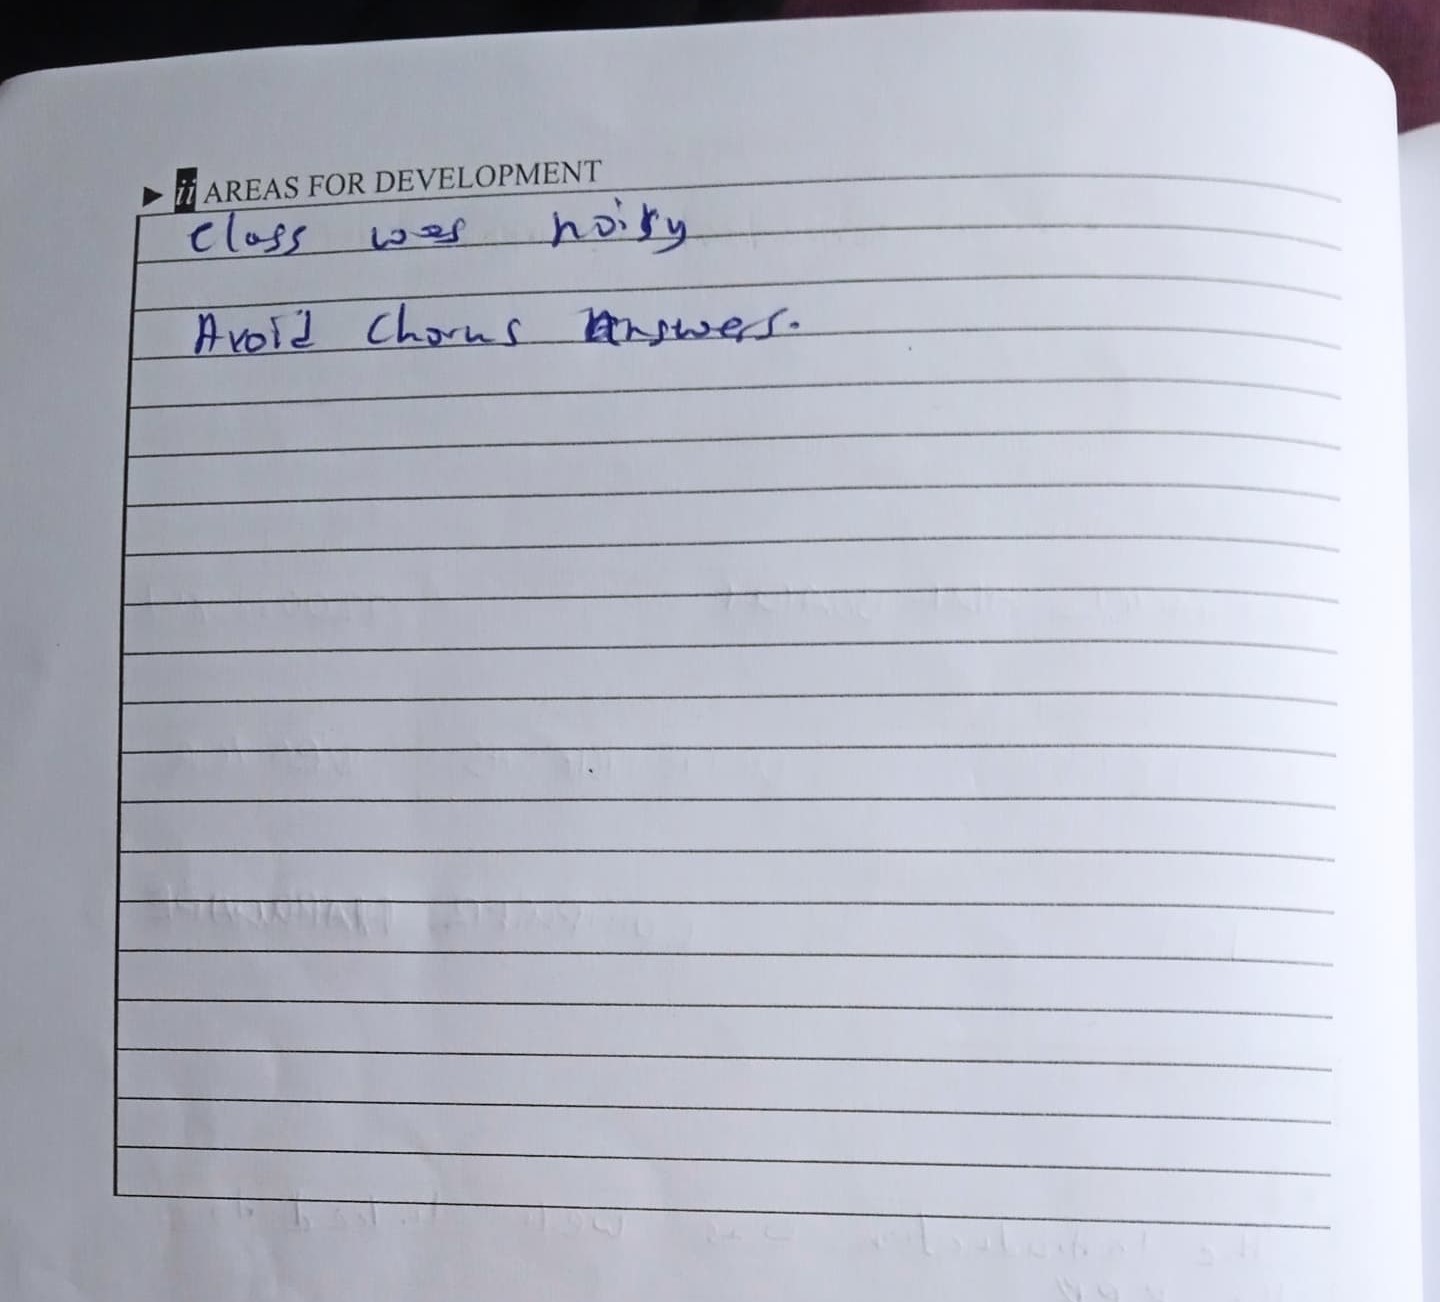 ii AREAS FOR DEVELOPMENT
Class was noisy
Avoid Chorus Answers.